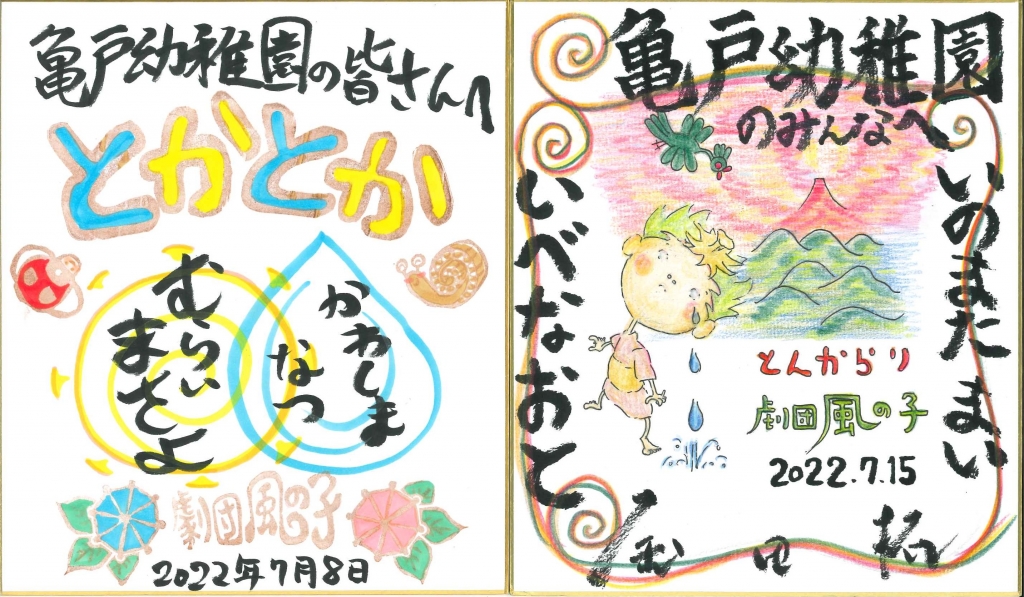 亀戸幼稚園の皆さんへ
とかとか
かわしま
なつ
むらい
まさよ
劇団風の子
2022年7月8日
亀戸幼稚園
のみんなへ
いのまたまい
いべなおと
とんからり
劇団風の子
2022.7.15